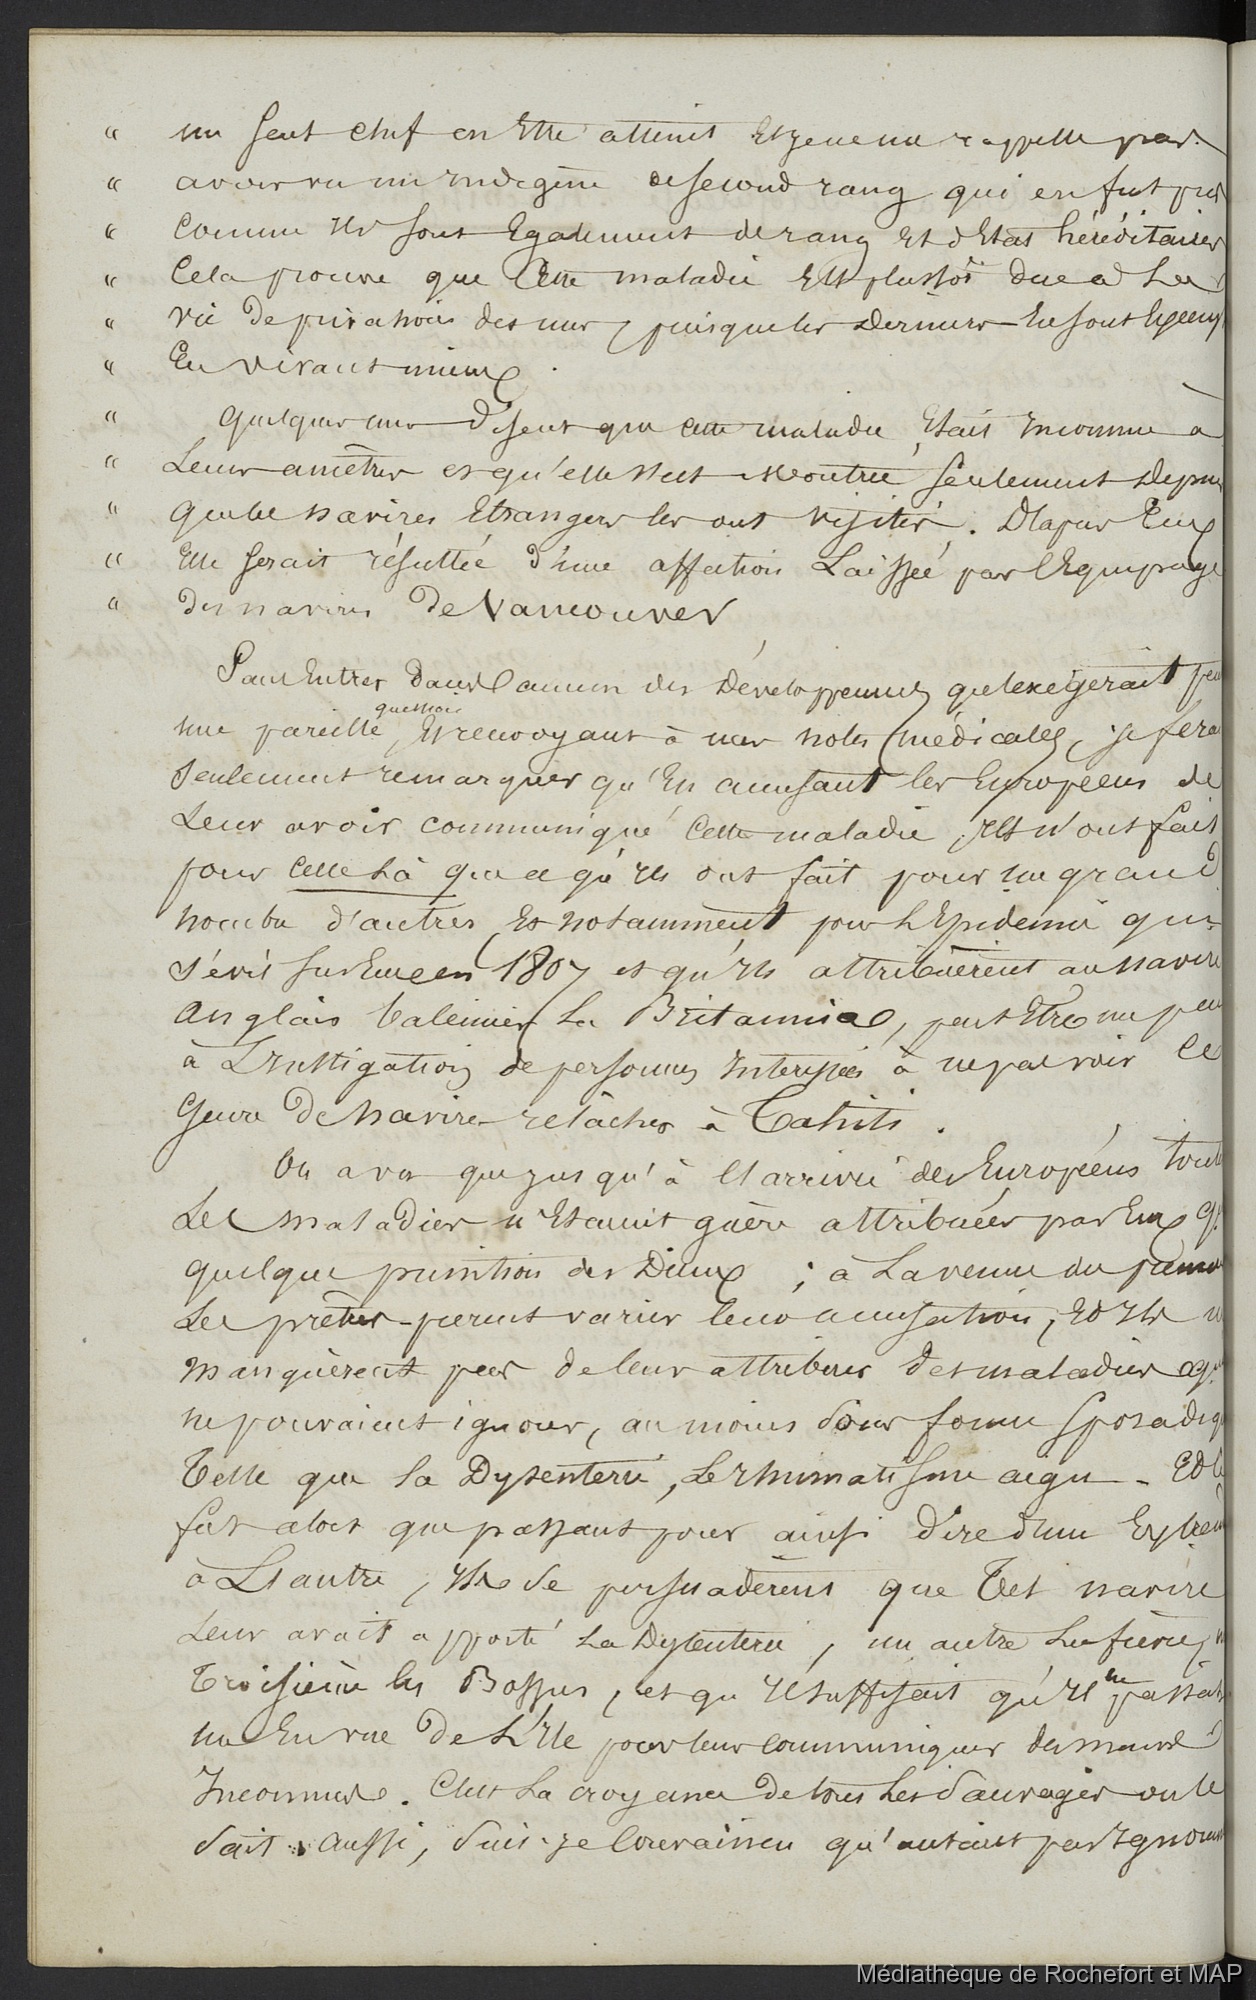 “ un seul chef en être atteint et je ne me rappelle pas
“ avoir vu un indigène de second rang qui en fut pris
“ comme ils sont également de rang et d'états héréditaires
“ Cela prouve que cette maladie est plustôt due à la
“ vie de privations des uns, puisque les derniers en sont
“ En vivant mieux.
“ quelques uns disent que cette maladie était inconnue à
“ Leurs ancêtres et qu'elle s'est montrée seulement depuis
“ que les navires Etrangers les ont visités. D'après Eux
“ Elle serait résultée d'une affection Laissée par l'Equipage
“ des navires de Vancouver
Sans Entrer dans aucun des Développements qu'exigerait
une pareille question, et renvoyant à mes notes médicales, je ferai
seulement remarquer qu'En accusant les Européens de
Leur avoir communiqué cette maladie, Ils n'ont fait
pour celle là que ce qu'ils ont fait pour un grand
nombre d'autres, et notamment pour l'Epidémie qui
sévit sur Eux en 1807 et qu'ils attribuèrent au navire
anglais baleinier La Britannia, peut Etre un peu
à L'instigation de personnes interessées à ne pas voir ce
genre de navires relâcher à Tahiti.
On a vu que jusqu'à l'arrivée des Européens toutes
Les maladies n'étaient guère attribuées par Eux qu'à
quelque punition des Dieux ; à La venue du
Les prêtres purent varier leur accusation, et ils ne
manquèrent pas de leur attribuer des maladies qu'ils
ne pouvaient ignorer, au moins sous forme sporadique
telle que la Dysenterie, Le rhumatisme aigu - Et ce
fut alors que passant pour ainsi dire d'un Extrême
à L'autre, ils se persuadèrent que tel navire
Leur avait apporté La Dysenterie, un autre La fièvre, un
troisième les Bosses, et qu'il suffisait qu'il ne passât
un En vue de L'île pour leur communiquer des maux
Inconnus. C'est La croyance de tous Les sauvages on le
sait aussi, suis-je Convaincu qu'autant par ignorance
Médiathèque de Rochefort et MAP